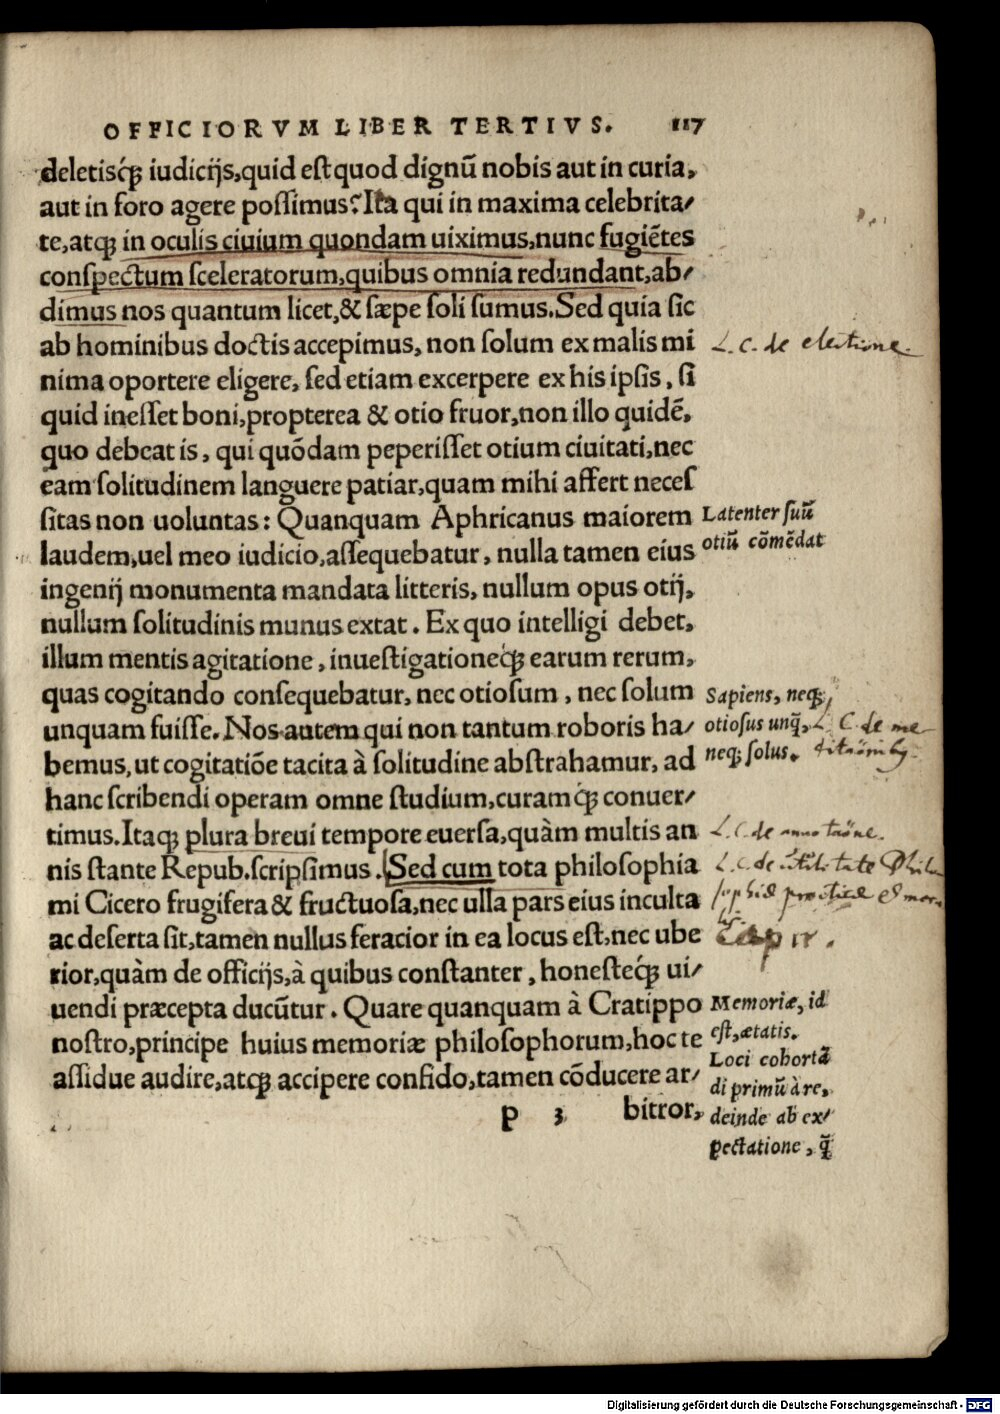 OFFICIORVM LIBER TERTIVS. 117
deletisq́ꝫ iudicijs, quid est quod dignū nobis aut in curia,
aut in foro agere possimus? Ita qui in maxima celebrita/
te, atqꝫ in oculis ciuium quondam uiximus, nunc fugiētes
conspectum sceleratorum, quibus omnia redundant, ab/
dimus nos quantum licet, & sæpe soli sumus. Sed quia sic
ab hominibus doctis accepimus, non solum ex malis mi
L. C. de electione.
nima oportere eligere, sed etiam excerpere ex his ipsis, si
quid inesset boni, propterea & otio fruor, non illo quidē,
quo debeat is, qui quōdam peperisset otium ciuitati, nec
eam solitudinem languere patiar, quam mihi affert neces
sitas non uoluntas: Quanquam Aphricanus maiorem
Latenter suū
laudem, uel meo iudicio, assequebatur, nulla tamen eius
otiū cōmēdat
ingenij monumenta mandata litteris, nullum opus otij,
nullum solitudinis munus extat. Ex quo intelligi debet,
illum mentis agitatione, inuestigationeq́ꝫ earum rerum,
quas cogitando consequebatur, nec otiosum, nec solum
Sapiens, neqꝫ
unquam fuisse. Nos autem qui non tantum roboris ha/
otiosus unq̄, L. C. de me
bemus, ut cogitatiōe tacita à solitudine abstrahamur, ad
neqꝫ solus.
hanc scribendi operam omne studium, curamq́ꝫ conuer/
timus. Itaqꝫ plura breui tempore euersa, quàm multis an
L. C. de
nis stante Repub. scripsimus. Sed cum tota philosophia
L. C. de utilitate Philo
mi Cicero frugifera & fructuosa, nec ulla pars eius inculta
sophiæ practicæ
ac deserta sit, tamen nullus feracior in ea locus est, nec ube
rior, quàm de officijs, à quibus constanter, honesteq́ꝫ ui/
uendi præcepta ducūtur. Quare quanquam à Cratippo
Memoriæ, id
nostro, principe huius memoriæ philosophorum, hoc te
est, ætatis.
assidue audire, atqꝫ accipere confido, tamen cōducere ar/
Loci cohortā
di primū à re,
p 3 bitror,
deinde ab ex/
pectatione, q̄
Digitalisierung gefördert durch die Deutsche Forschungsgemeinschaft - DFG